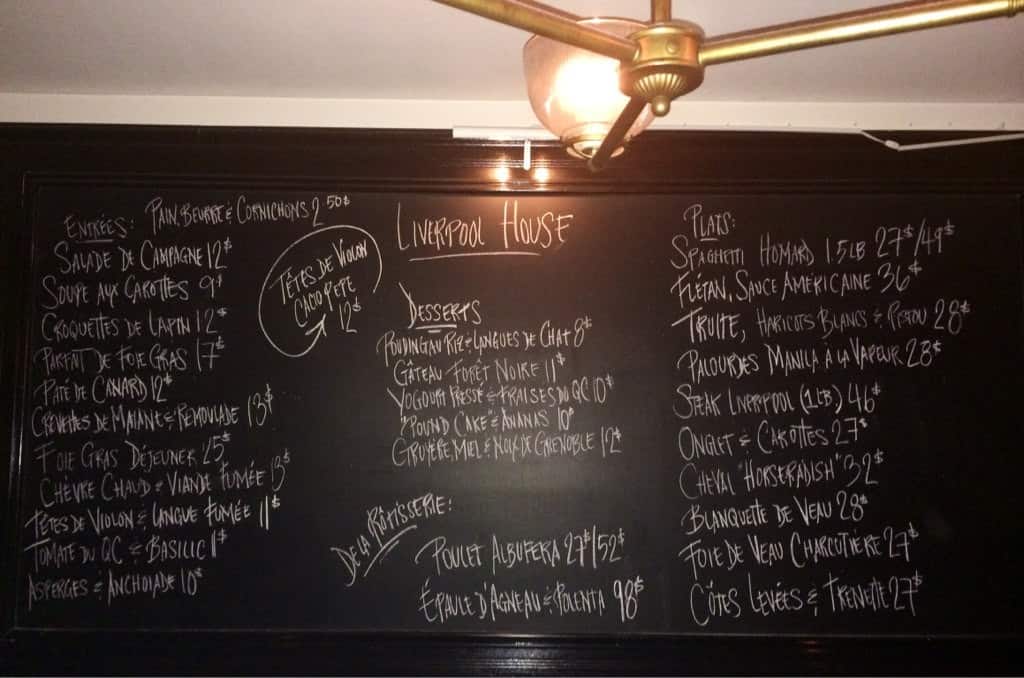 Entrées: Pain, Beurre & Cornichons 2 50$
Salade de Campagne 12$
Soupe aux Carottes 9$
Croquettes de Lapin 12$
Parfait de Foie Gras 17$
Paté de Canard 12$
Crevettes de Matane & Remoulade 13$
Foie Gras Déjeuner 25$
Chèvre Chaud & Viande Fumée 13$
Têtes de Violon & Langue Fumée 11$
Tomate du QC & Basilic 11$
Asperges & Anchoiade 10$
Têtes de Violon
Cacio Pepe
12$
Liverpool House
Desserts
Pouding au Riz & Langues de Chat 8$
Gâteau Forêt Noire 11$
Yogourt Pressé & Fraises du QC 10$
"Pound Cake" & Ananas 10$
Gruyère, Miel & Noix de Grenoble 12$
De la Rôtisserie:
Poulet Albufera 27$/52$
Épaule d'Agneau & Polenta 98$
Plats:
Spaghetti Homard 1.5LB 27$/49$
Flétan, Sauce Américaine 36$
Truite, Haricots Blancs & Pistou 28$
Palourdes Manila à la Vapeur 28$
Steak Liverpool (1LB) 46$
Onglet & Carottes 27$
Cheval "Horseradish" 32$
Blanquette de Veau 28$
Foie de Veau Charcutière 27$
Côtes Levées & Trenette 27$